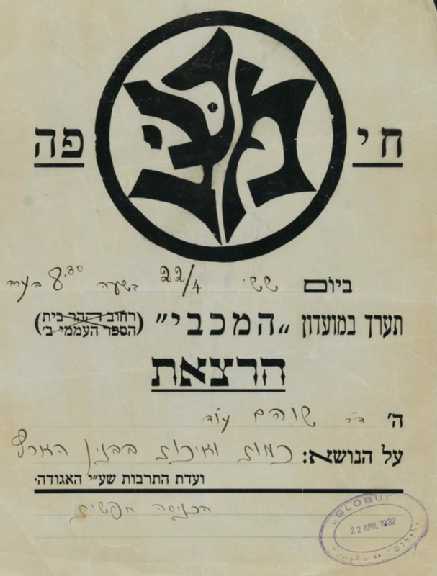 מכבי
חי פה
ביום ששי 22/4 בשעה 8.30 בערב
תערך במועדון „המכבי" (רחוב בית
הספר העממי ב')
הרצאת
ה' שוהם
על הנושא: כמות ואיכות בבנין הארץ
ועדת התרבות שע"י האגודה.
הכניסה חפשית
GLOBUS
22 APR 1932